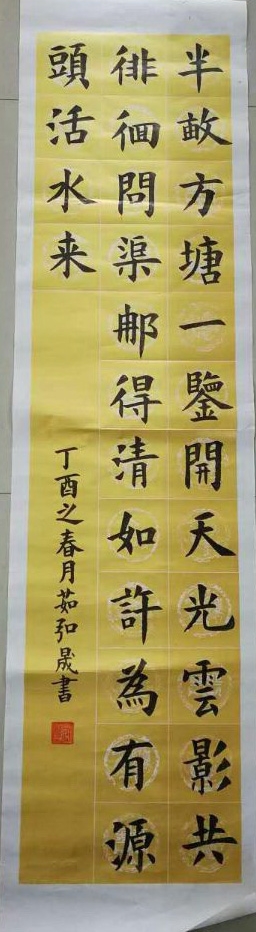 半畝方塘一鑒開天光雲影共
徘徊問渠那得清如許為有源
頭活水来
丁酉之春月茹弘晟書